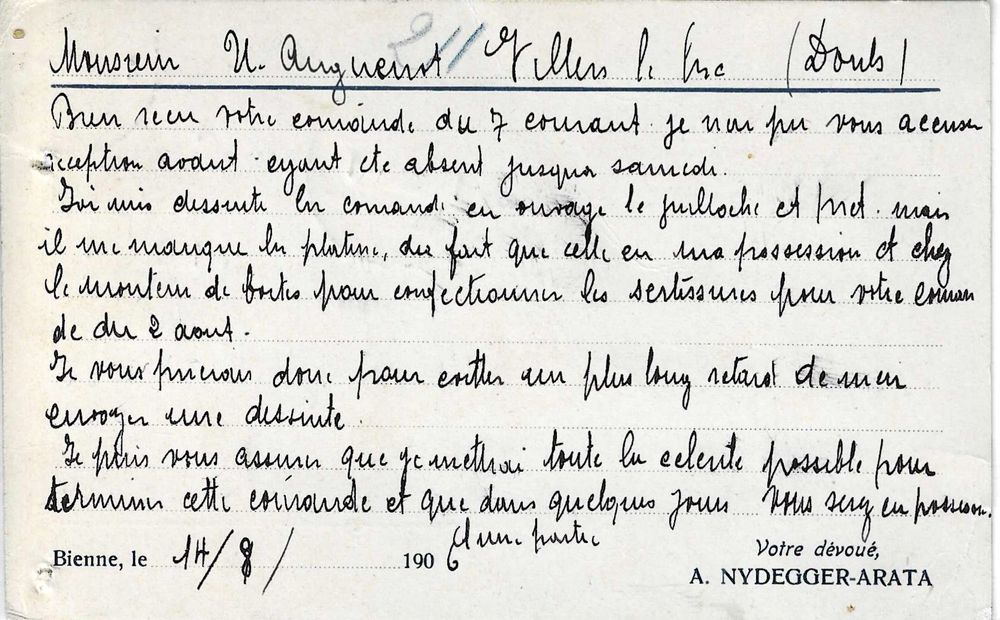 211
Monsieur U. Anguenot Villers le Lac (Doubs)
Bien recu votre comande du 7 courant je n'ai pu vous accuser
reception avant ayant ete absent jusqua samedi.
J'ai mis dessuite la comande en ouvrage le guilloche et pret. mais
il me manque la platine, du fait que celle en ma possession et chez
le monteur de boites pour confectionner les sertissures pour votre coman
de du 2 aout.
Je vous prierais donc pour eviter un plus long retard de m'en
envoyer une dessuite.
Je puis vous assurer que je mettrai toute la celerite possible pour
terminer cette comande et que dans quelques jours vous serez en possession
d'une partie
Bienne, le 14/8/ 1906
Votre dévoué,
A. NYDEGGER-ARATA